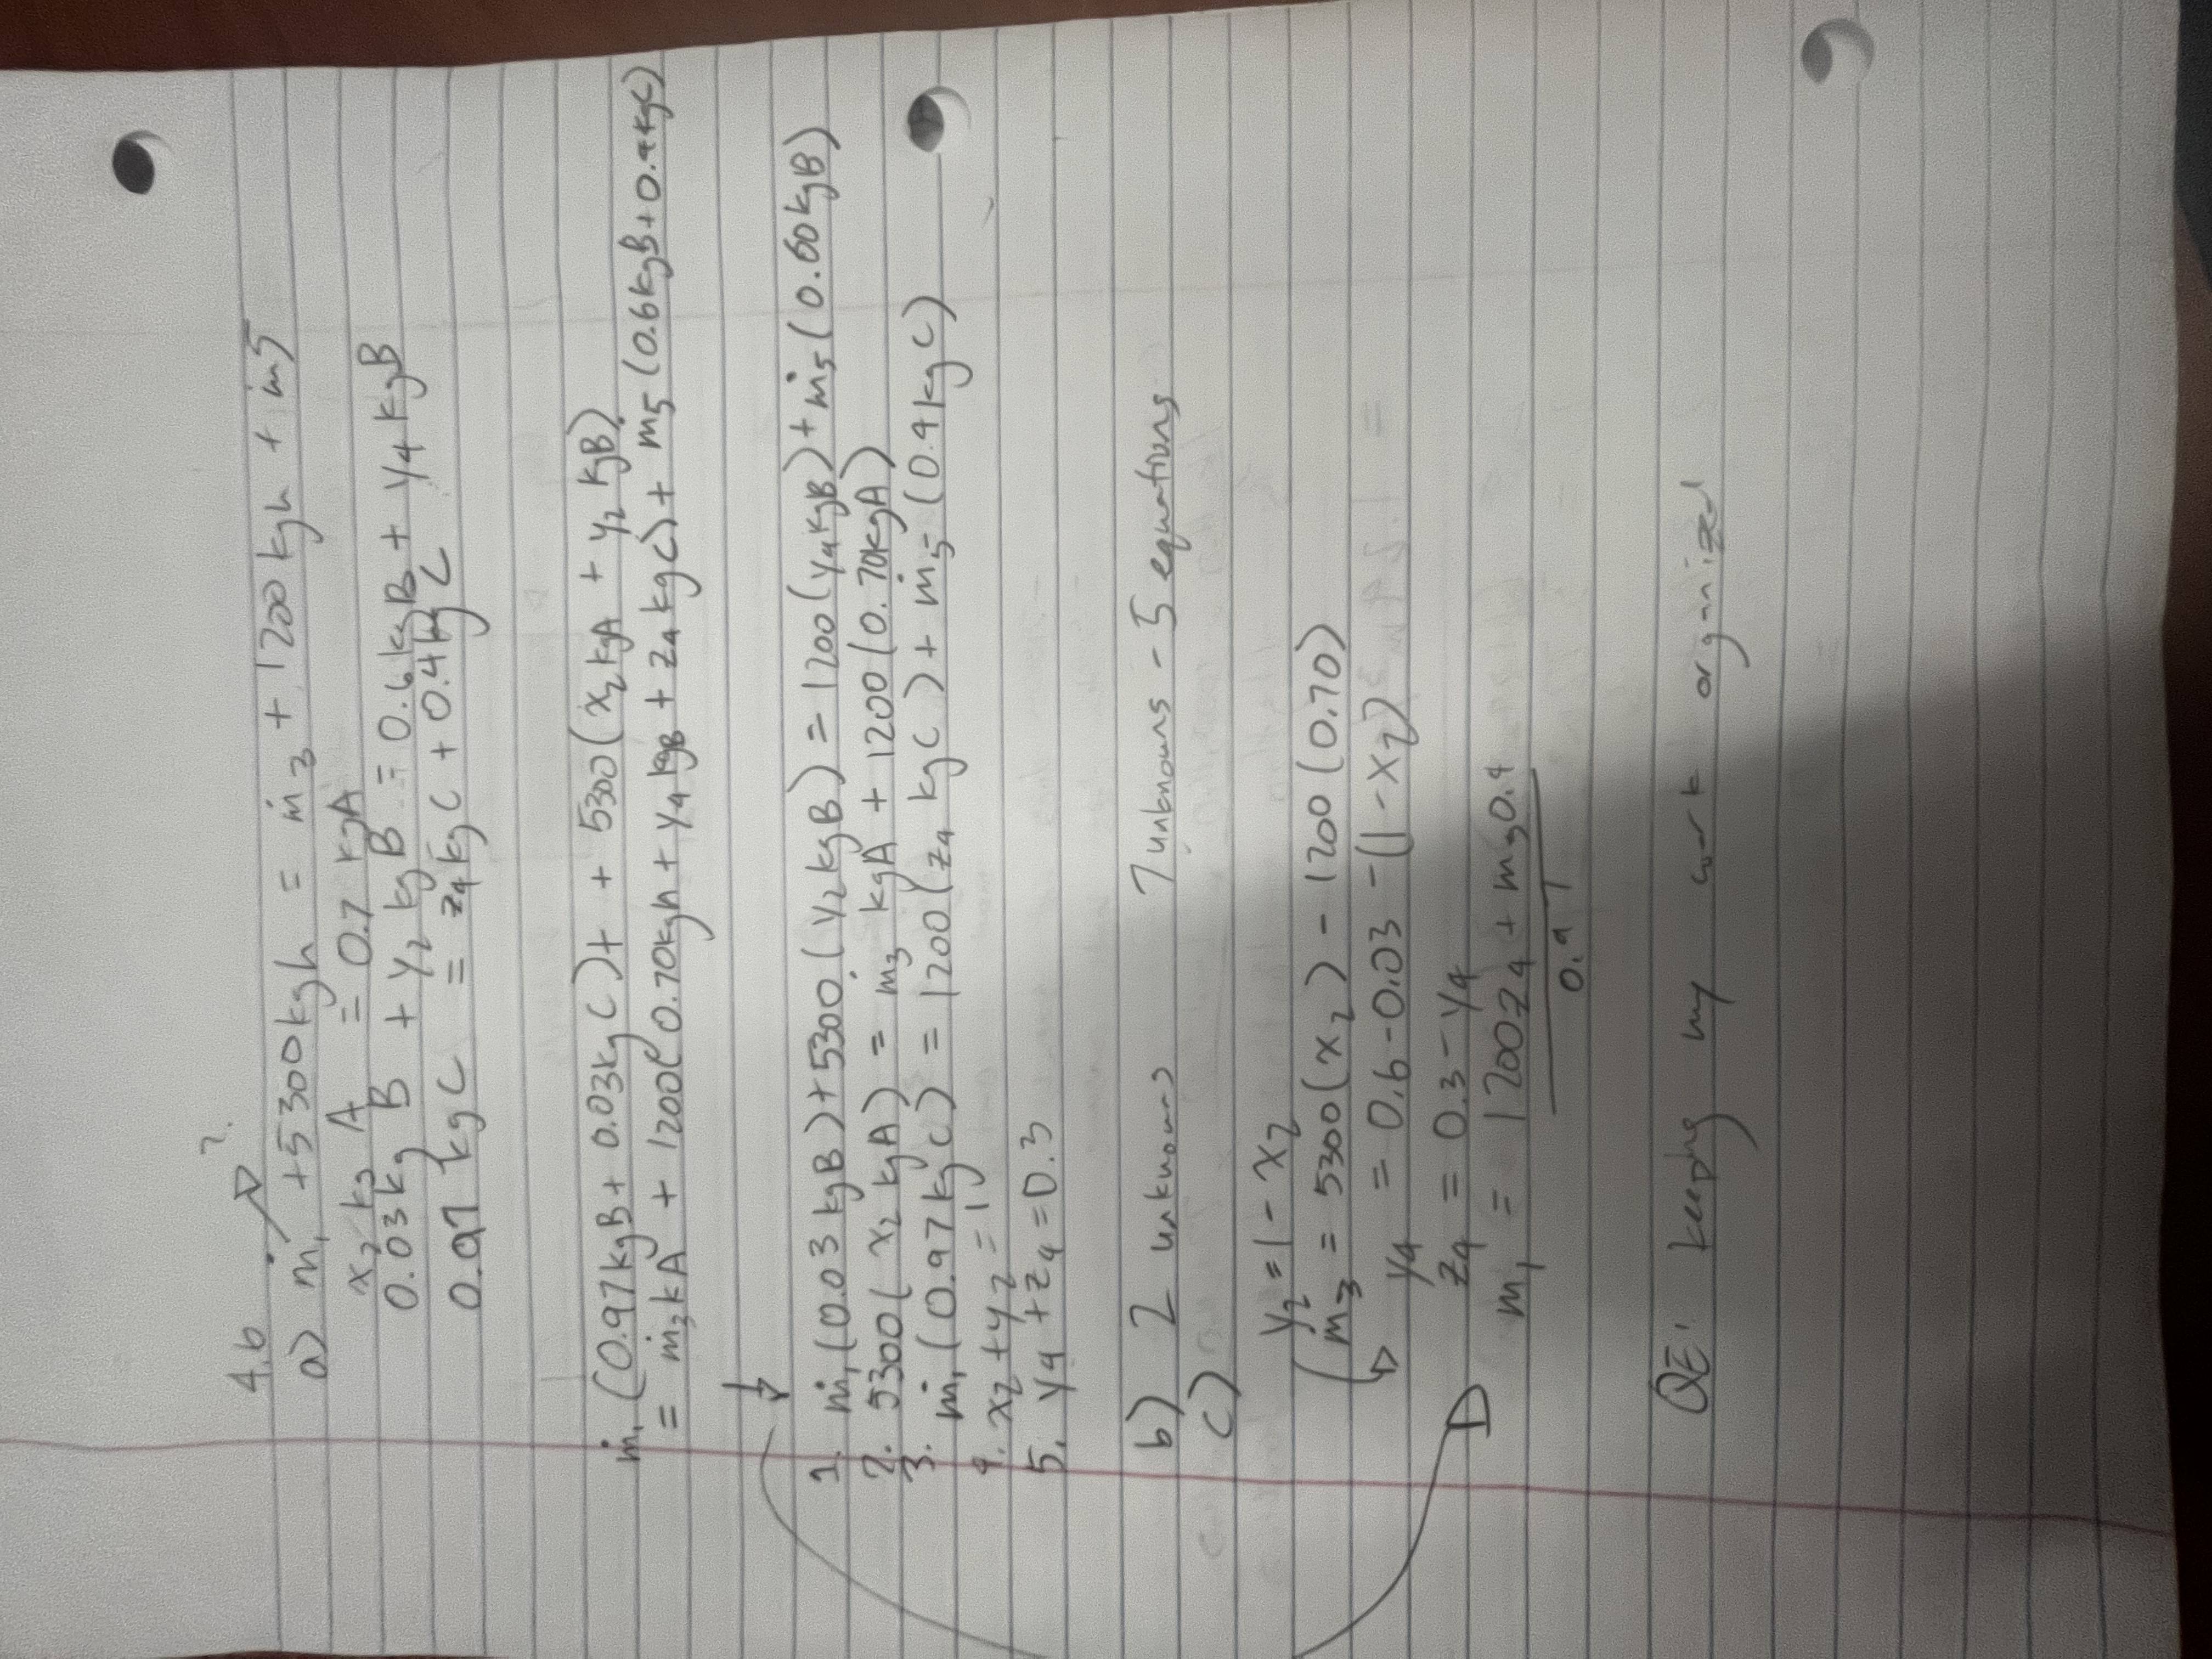 4.6 ?
a) ṁ₁ + 5300kgh = ṁ₃ + 1200kgh + ṁ5
x₂ kg A = 0.7 kgA
0.03kg B + y₂ kg B = 0.6kgB + y4 kgB
0.97 kgC = z4 kgC + 0.4kgC
ṁ₁ (0.97kgB + 0.03kgC)+ + 5300(x₂ kgA + y₂ kgB)
= ṁ₃kA + 1200(0.70kgh + y4 kgB + z4 kgC) + ṁ5 (0.6kgB+0.4kgC)
1. ṁ₁(0.03 kgB)+5300(y₂kgB) = 1200(y4kgB)+ṁ5(0.60kgB)
2. 5300( x₂ kgA) = ṁ₃ kgA + 1200(0.70kgA)
3. ṁ₁(0.97kgC) = 1200(z4 kgC) + ṁ5 (0.4kgC)
4. x₂ + y₂ = 1
5. y4 + z4 = 0.3
b) 2 unknowns 7 unknowns - 5 equations
c)
y₂ = 1 - x₂
ṁ₃ = 5300(x₂) - 1200(0.70)
y4 = 0.6-0.03 -(1-x₂)
z4 = 0.3-y4
m₁ = 1200z4 + m 0.4
0.97
QE: keeping my work organized